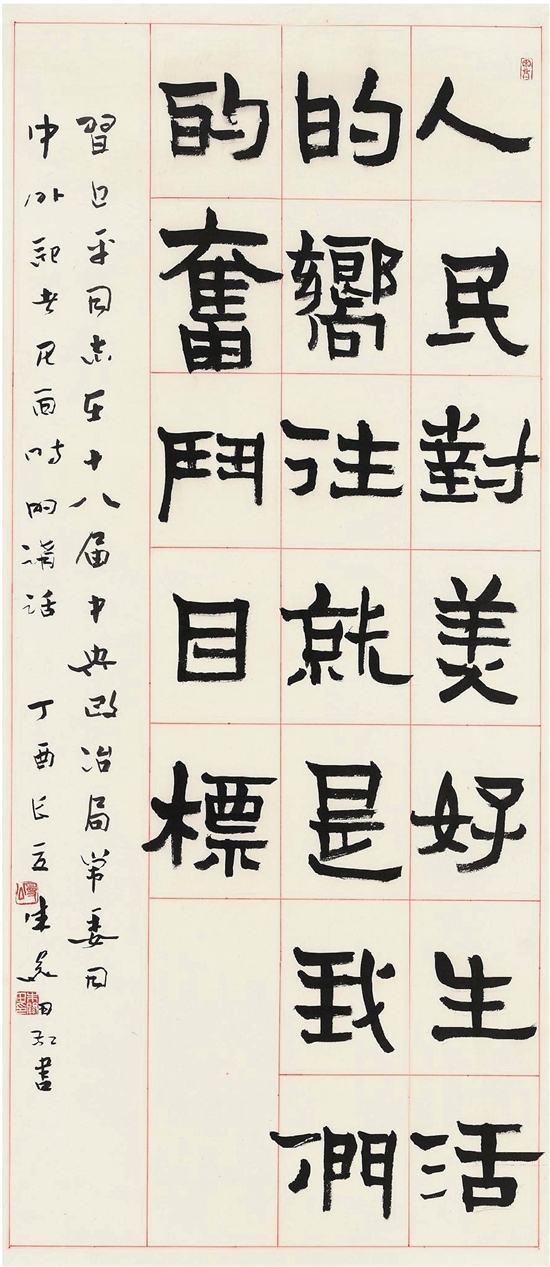 人民對美好生活
的嚮往就是我們
的奮鬥目標
習近平同志在十八届中央政治局常委同
中外記者見面時的講話 丁酉長 朱田敬書